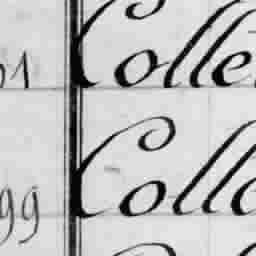 01 Colle
99 Colle